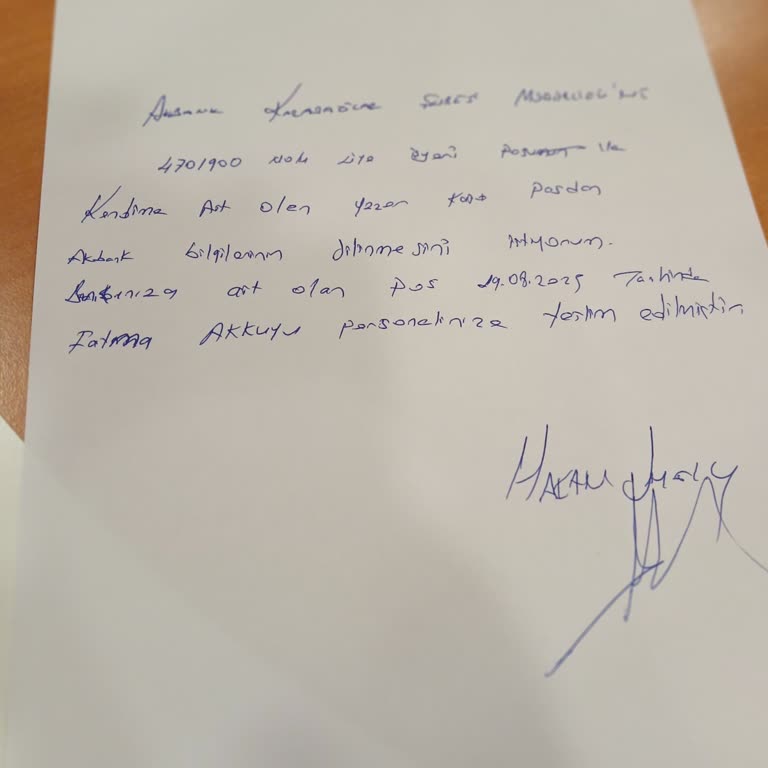 Akbank Karaköprü Şubesi Müdürlüğü'ne
4701900 nolu üye işyeri ile
Kendime Ait olan yazar kasa posdan
Akbank bilgilerinin silinmesini istiyorum.
Bankanıza ait olan pos 19.08.2025 Tarihinde
Fatma AKKUYU personelinize teslim edilmiştir
HAKAN